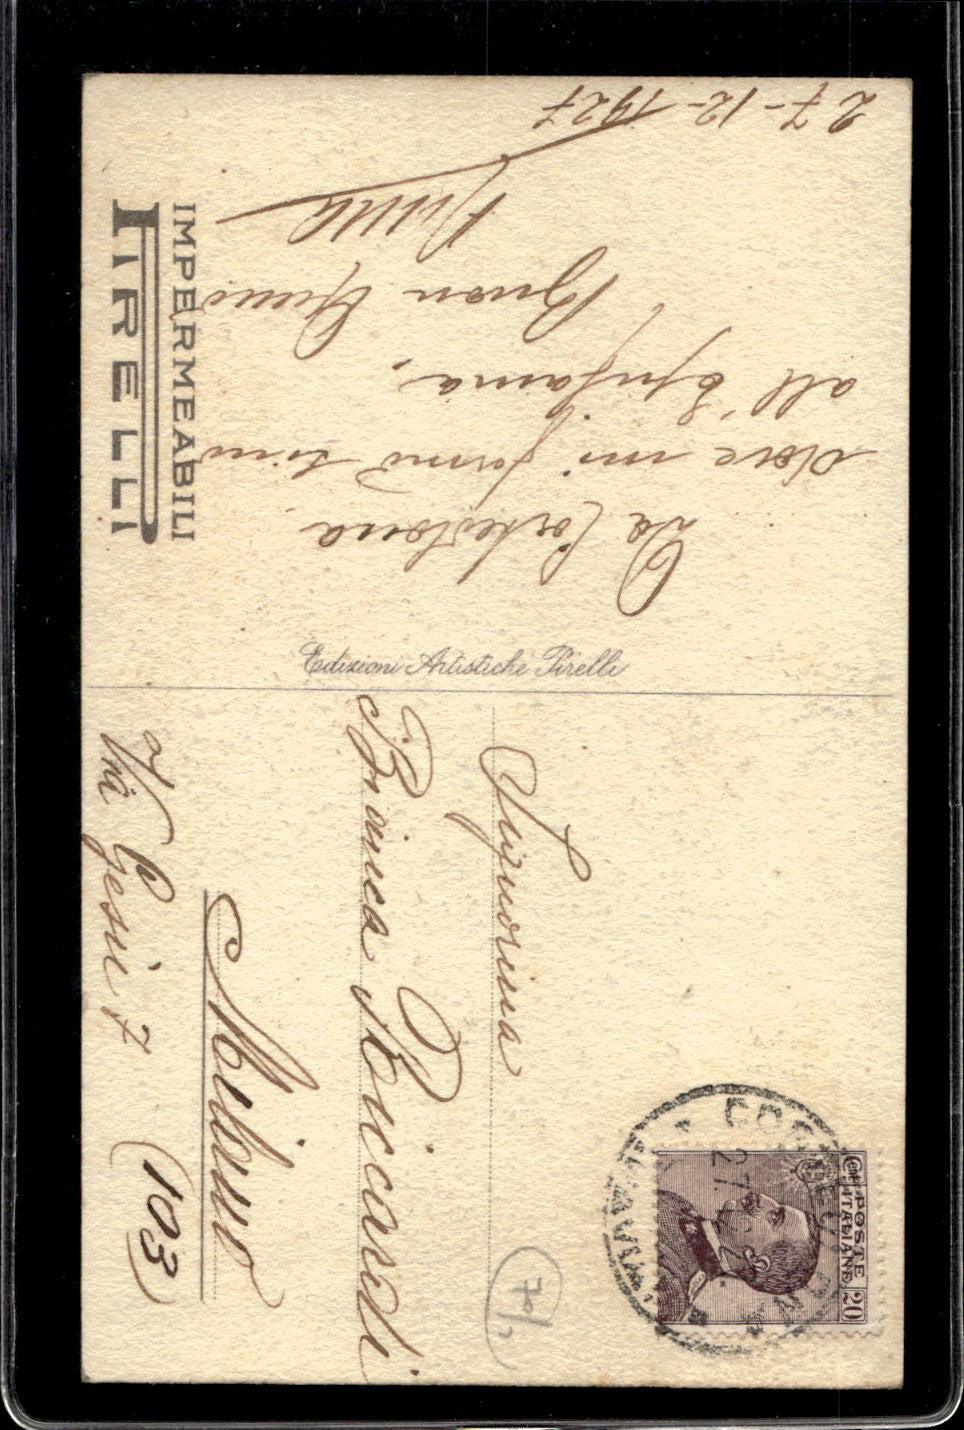 IMPERMEABILI
PIRELLI
27-12-1927
Da Cortestona
dove mi fermo sino
all'Epifania.
Buon Anno
Edizioni Artistiche Pirelli
Signorina
Bianca Riccardi
Milano
Via Gesù 7
(103)
70/1
POSTE
ITALIANE
Cent
20
27.